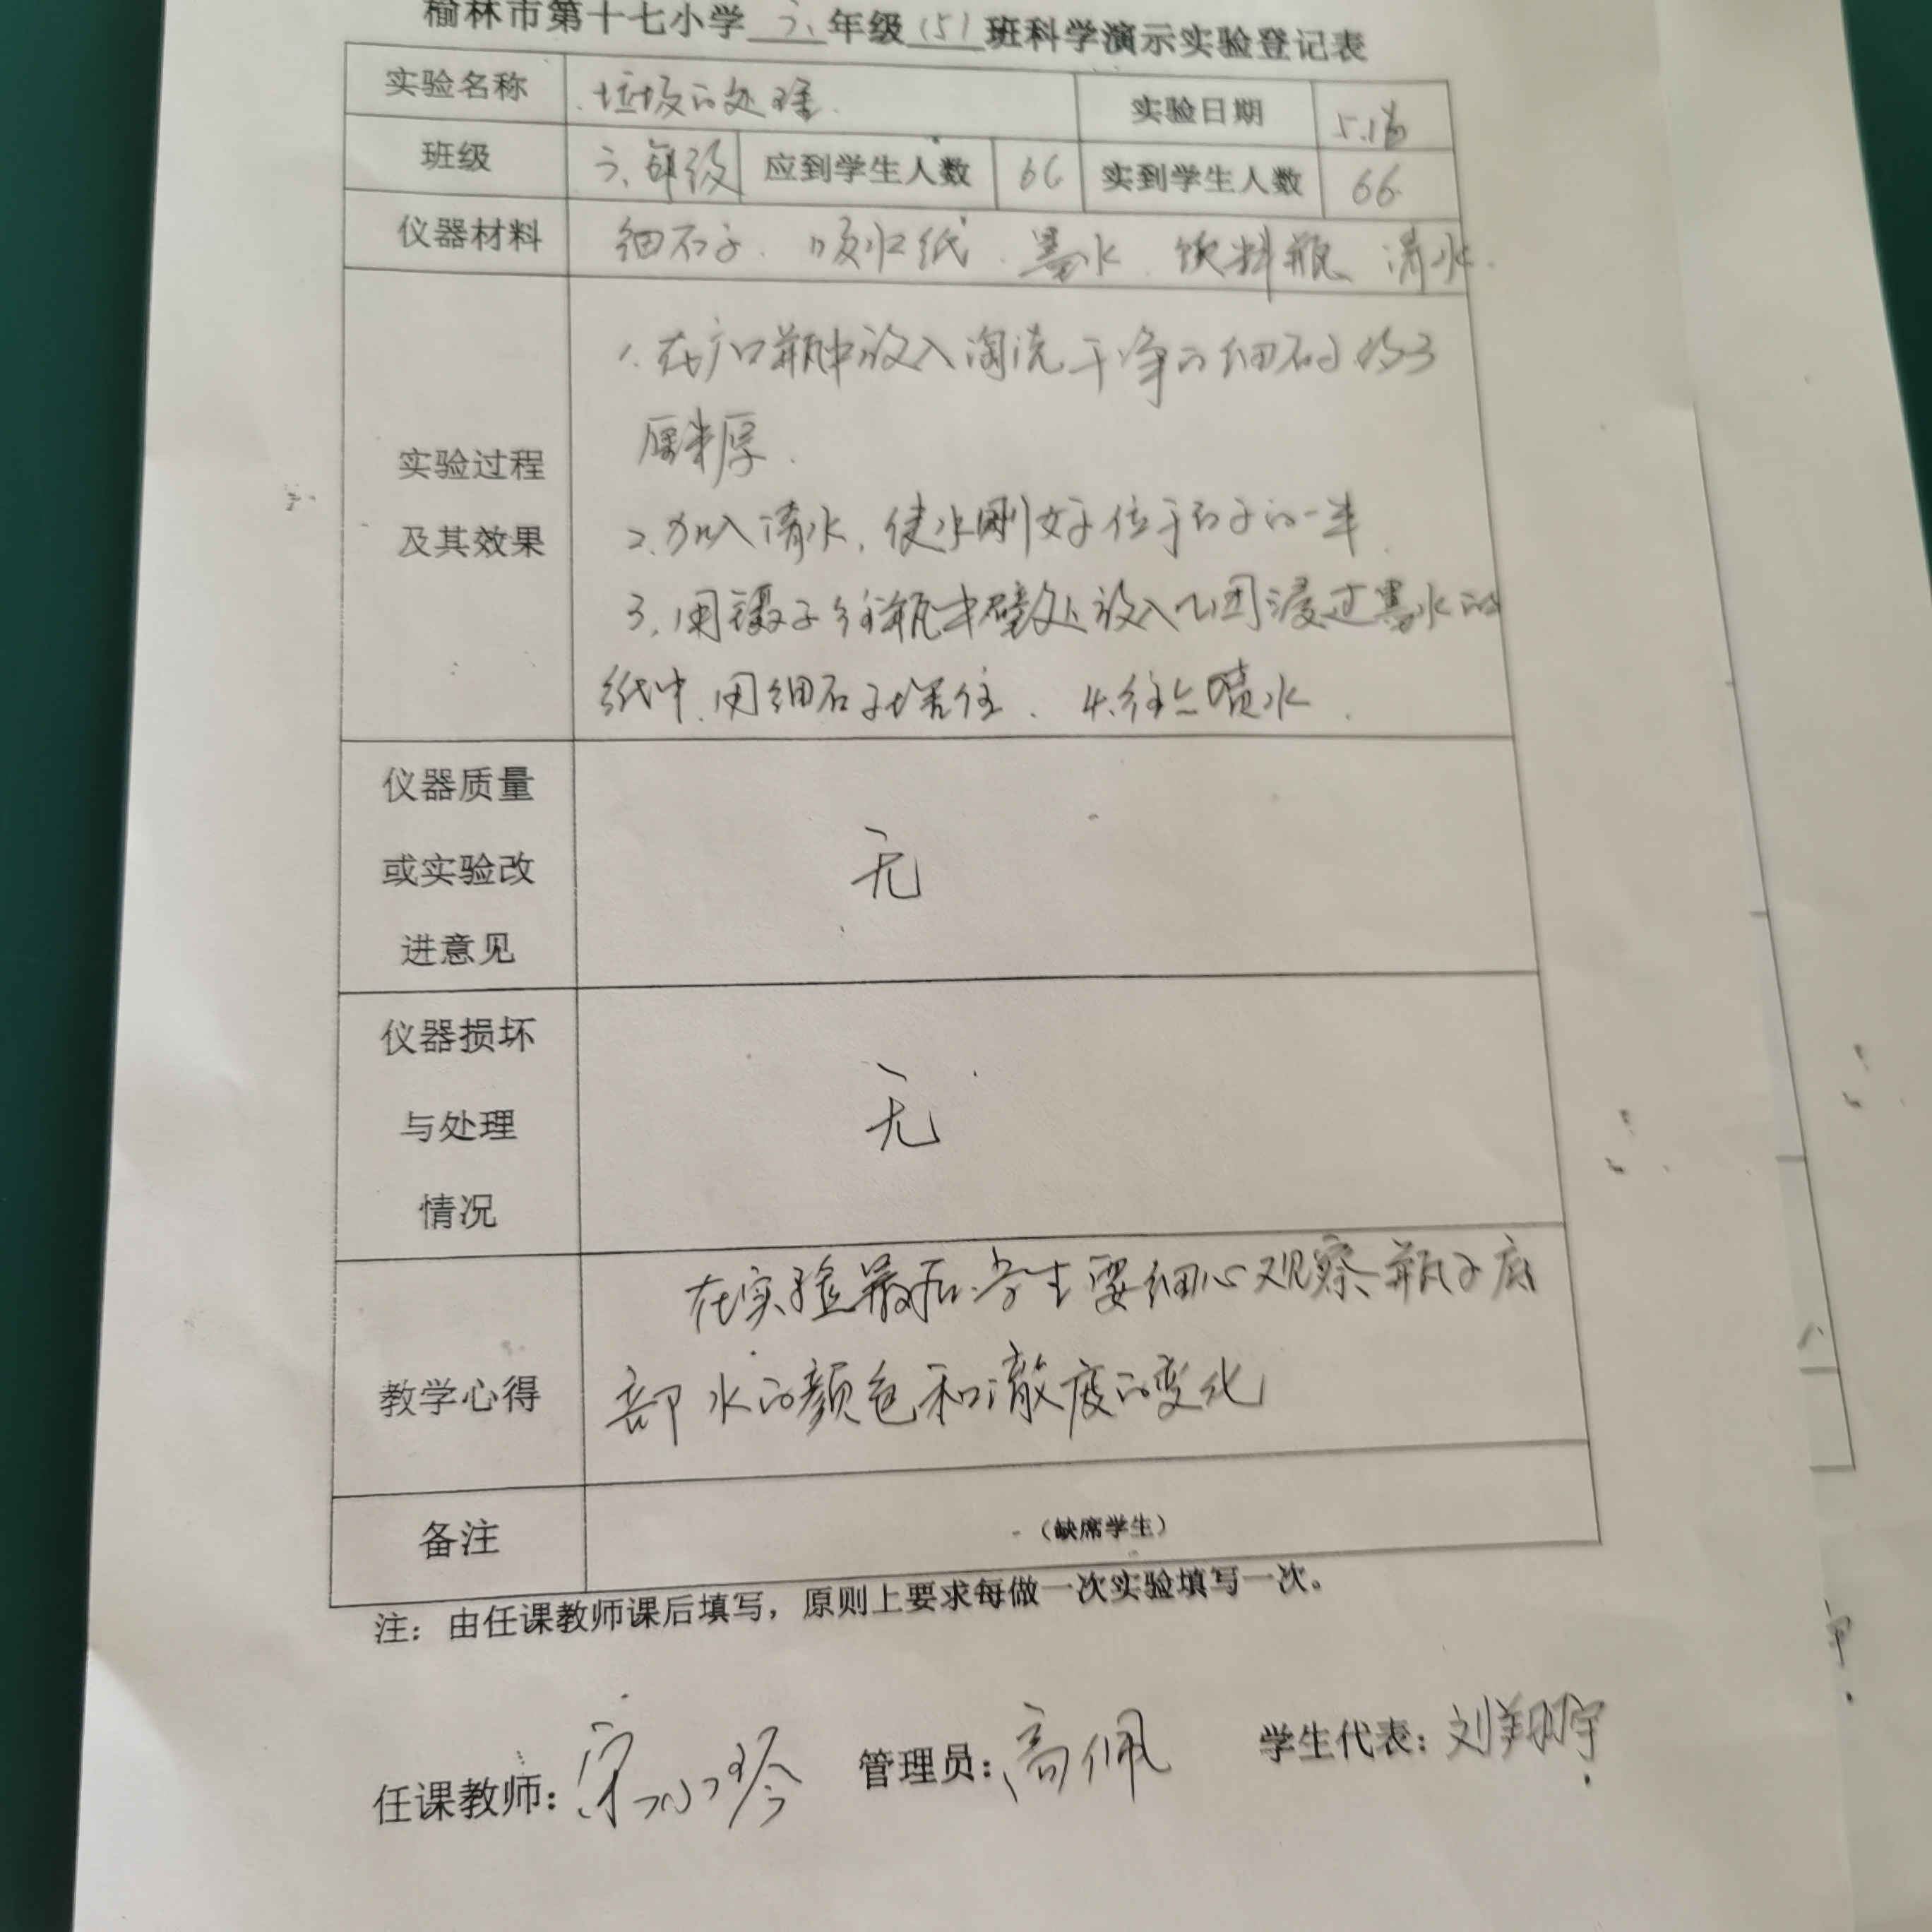 榆林市第十七小学 六 年级 (5) 班科学演示实验登记表
实验名称 垃圾的处理 实验日期 5.
班级 六年级 应到学生人数 66 实到学生人数 66
仪器材料 细石子、吸水纸、墨水、饮料瓶、清水
实验过程
及其效果
1.在广口瓶中放入淘洗干净的细石子约3
厘米厚.
2.加入清水,使水刚好位于石子的一半.
3.用镊子往瓶中壁处放入一团浸过墨水的
纸巾,用细石子堵住. 4.往上喷水.
仪器质量
或实验改
进意见
无
仪器损坏
与处理
情况
无
教学心得
在实验最后,学生要细心观察瓶子底
部水的颜色和清澈度的变化
备注 (缺席学生)
注：由任课教师课后填写，原则上要求每做一次实验填写一次。
任课教师: 管理员:高佩 学生代表:刘翔宇